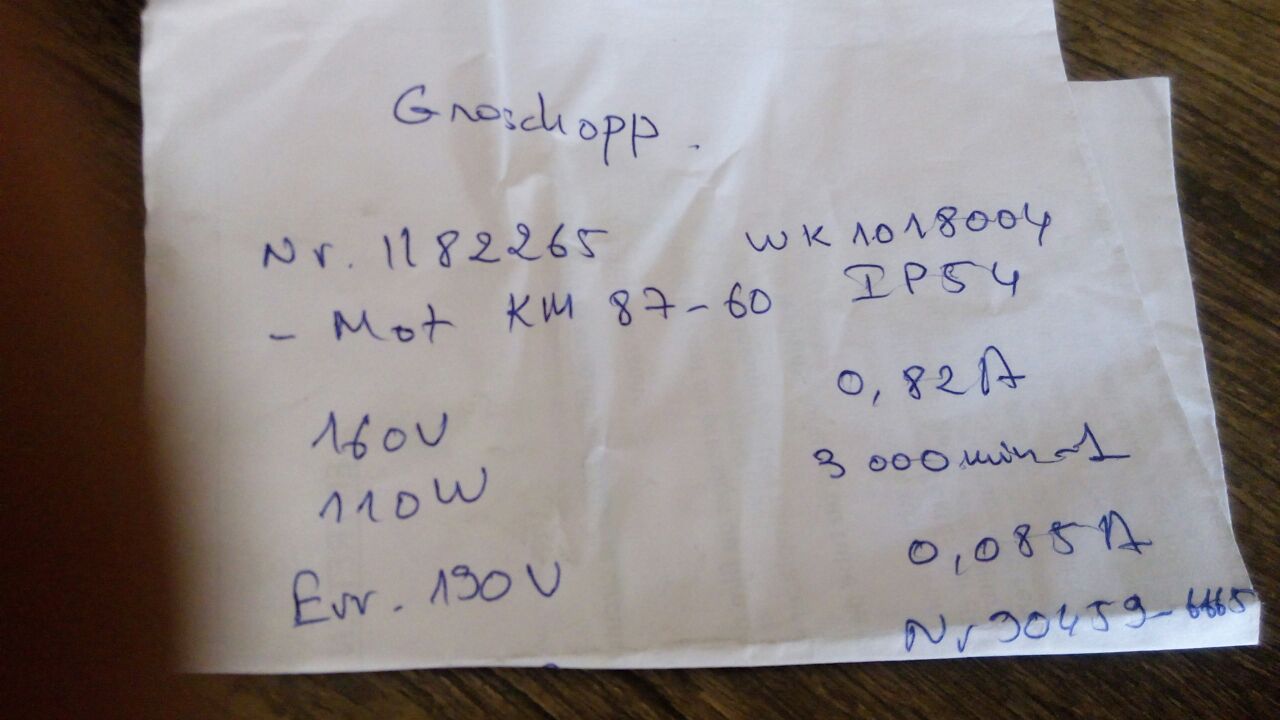 Groschopp.
Nr. 1182265 WK 1018004
- Mot KM 87-60 IP54
160V 0,82A
110W 3000min-1
Err. 190V 0,085A
Nr 90459-